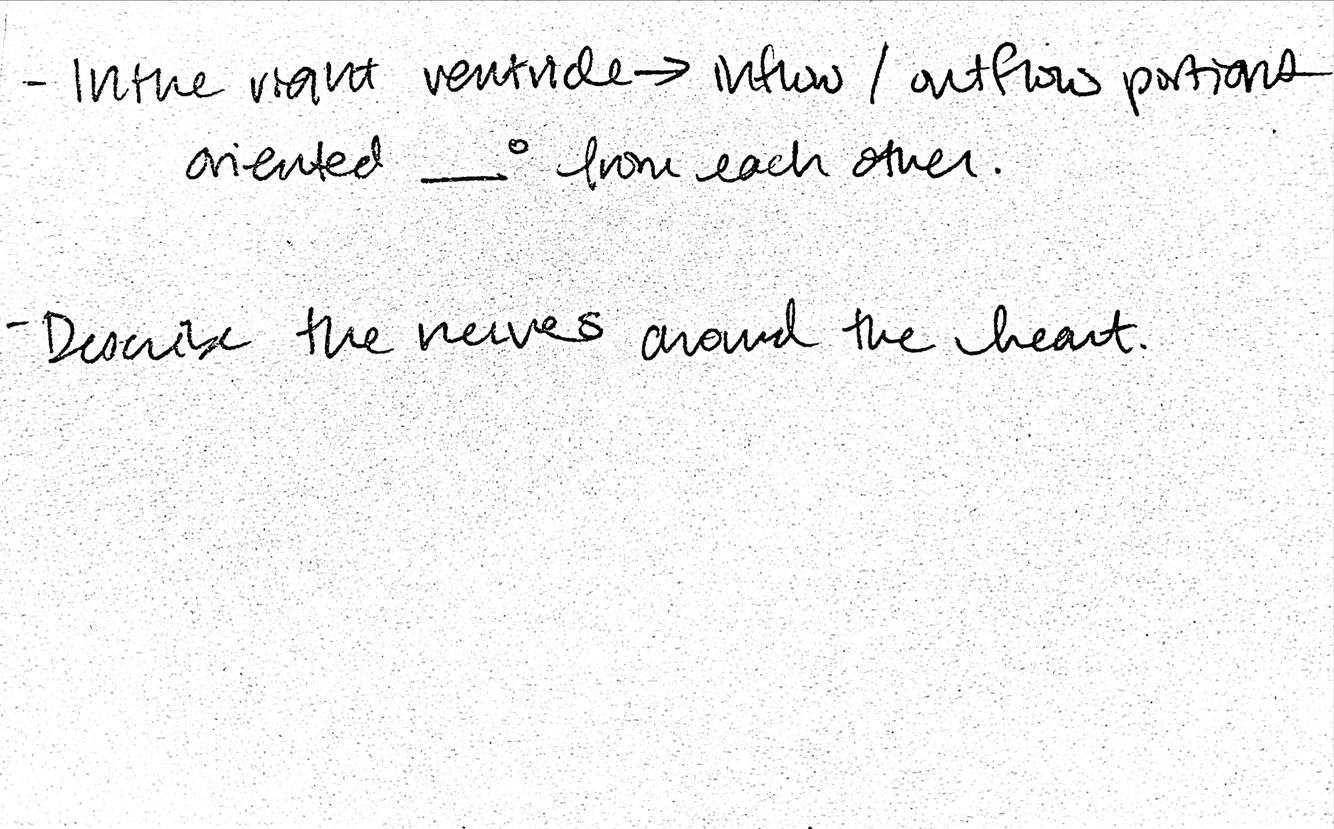 - In the right ventricle → inflow / outflow portions
oriented ___° from each other.
- Describe the nerves around the heart.